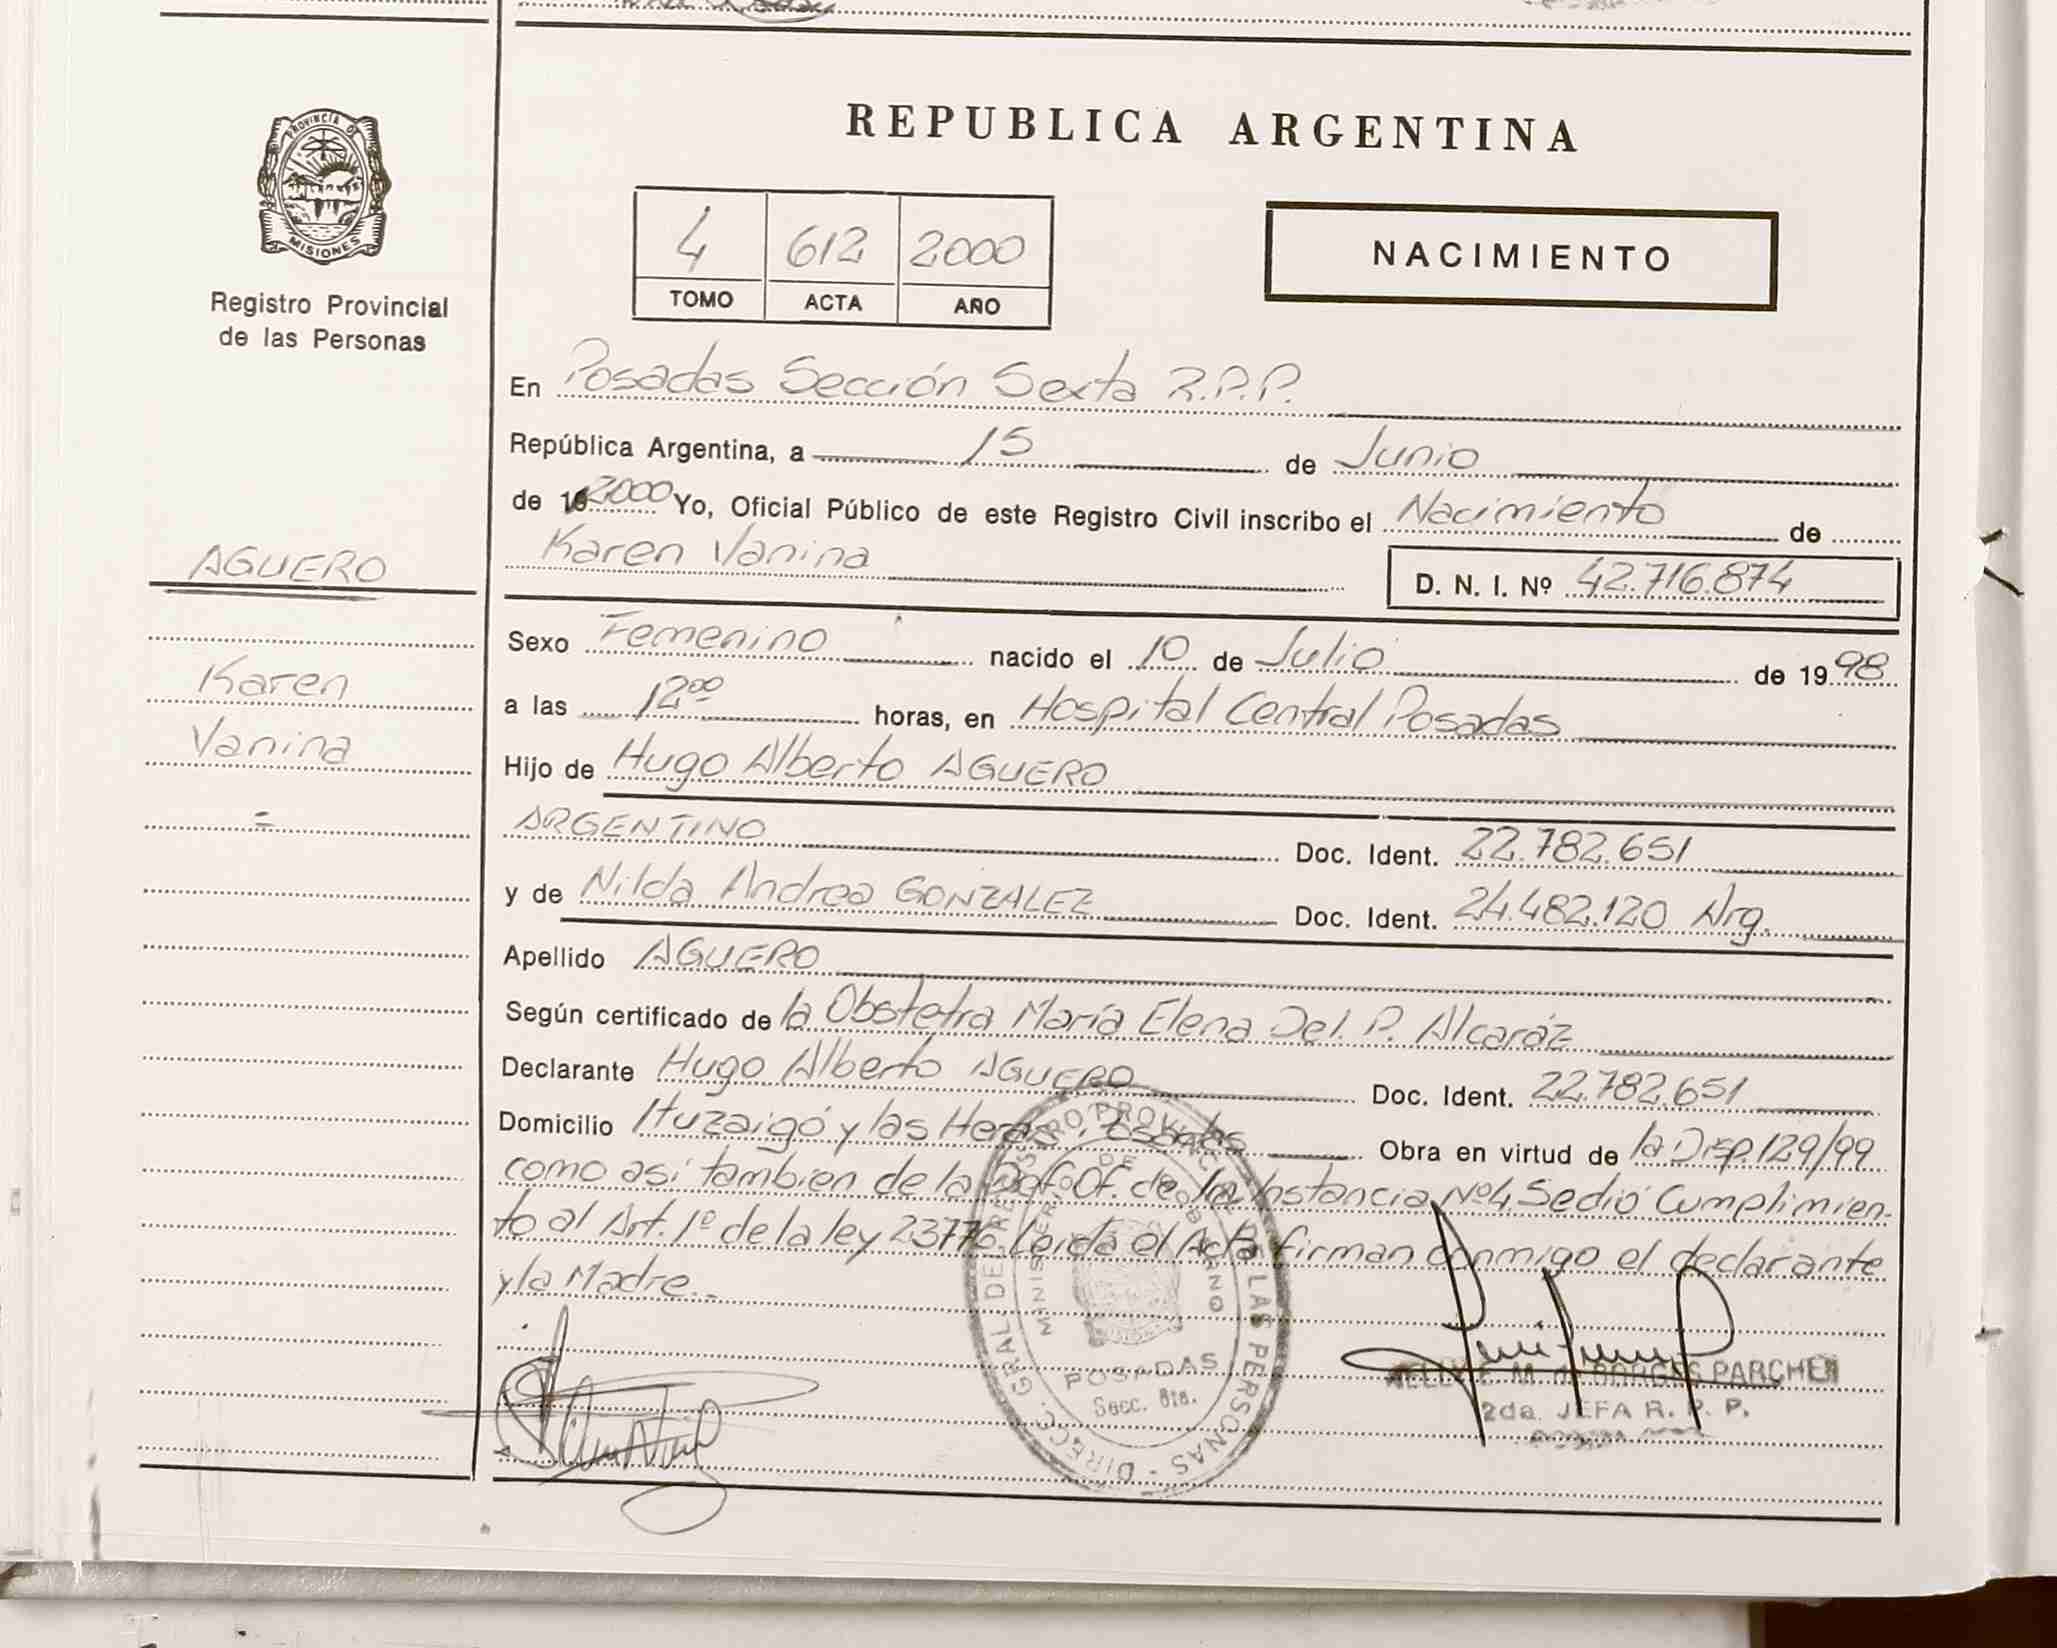 PROVINCIA DE
MISIONES
Registro Provincial
de las Personas
AGUERO
Karen
Vanina
=
REPUBLICA ARGENTINA
4 612 2000
TOMO ACTA AÑO
NACIMIENTO
En Posadas Sección Sexta R.P.P.
República Argentina, a 15 de Junio
de 2000 Yo, Oficial Público de este Registro Civil inscribo el Nacimiento de
Karen Vanina D. N. I. Nº 42.716.874
Sexo Femenino nacido el 10 de Julio de 1998
a las 12⁰⁰ horas, en Hospital Central Posadas
Hijo de Hugo Alberto AGUERO
ARGENTINO Doc. Ident. 22.782.651
y de Nilda Andrea GONZALEZ Doc. Ident. 24.482.120 Arg.
Apellido AGUERO
Según certificado de la Obstetra María Elena Del. P. Alcaráz
Declarante Hugo Alberto AGUERO Doc. Ident. 22.782.651
Domicilio Ituzaigó y las Heras. Posadas Obra en virtud de la Disp. 129/99
como asi tambien de la Def. Of. de 1ra Instancia Nº4. Sedió Cumplimien-
to al Art. 1º de la ley 23776. Leída el Acta firman conmigo el declarante
y la Madre.-
DIRECC. GRAL DE REGISTRO PROVINCIAL DE LAS PERSONAS -
MINISTERIO DE GOBIERNO
POSADAS
Secc. 6ta.
M. BORGES PARCHEN
2da. JEFA R. P. P.